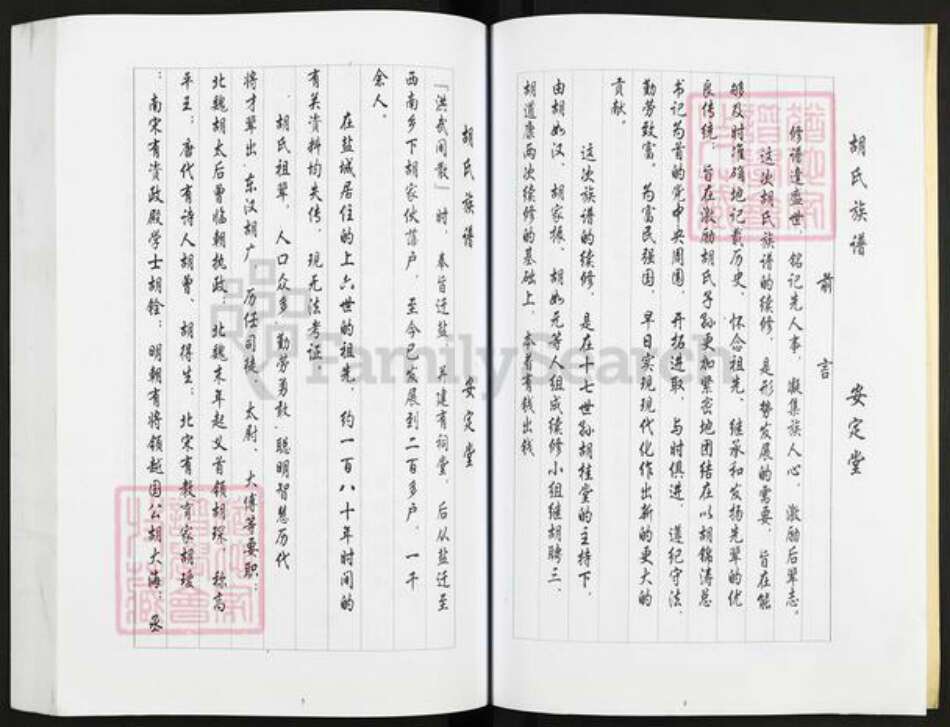 胡氏族谱 安定堂
前言
修谱逢盛世，铭记先人事，凝集族人心，激励后辈志。
这次胡氏族谱的续修，是形势发展的需要，旨在能
够及时准确地记载历史，怀念祖先，继承和发扬先辈的优
良传统；旨在激励胡氏子孙更加紧密地团结在以胡锦涛总
书记为首的党中央周围，开拓进取，与时俱进，遵纪守法、
勤劳致富，为富民强国，早日实现现代化作出新的更大的
贡献。
这次族谱的续修，是在十七世孙胡桂堂的主持下，
由胡如汉、胡家振、胡如元等人组成续修小组继胡聘三、
胡道康两次续修的基础上，本着有钱出钱
胡氏族谱 安定堂
「洪武闲散」时，奉旨迁盐，并建有祠堂，后从盐迁至
西南乡下胡家伙落户，至今已发展到二百多户，一千
余人。
在盐城居住的上六世的祖先，约一百八十年时间的
有关资料均失传，现无法考证
胡氏祖辈，人口众多，勤劳勇敢，聪明智慧历代
将才辈出，东汉胡广 历任司徒、太尉、大傅等要职；
北魏胡太后曾临朝执政，北魏末年起义首领胡琛，称高
平王；唐代有诗人胡曾、胡得生；北宋有教育家胡瑗
；南宋有资政殿学士胡铨；明朝有将领越国公胡大海；丞
FamilySearch